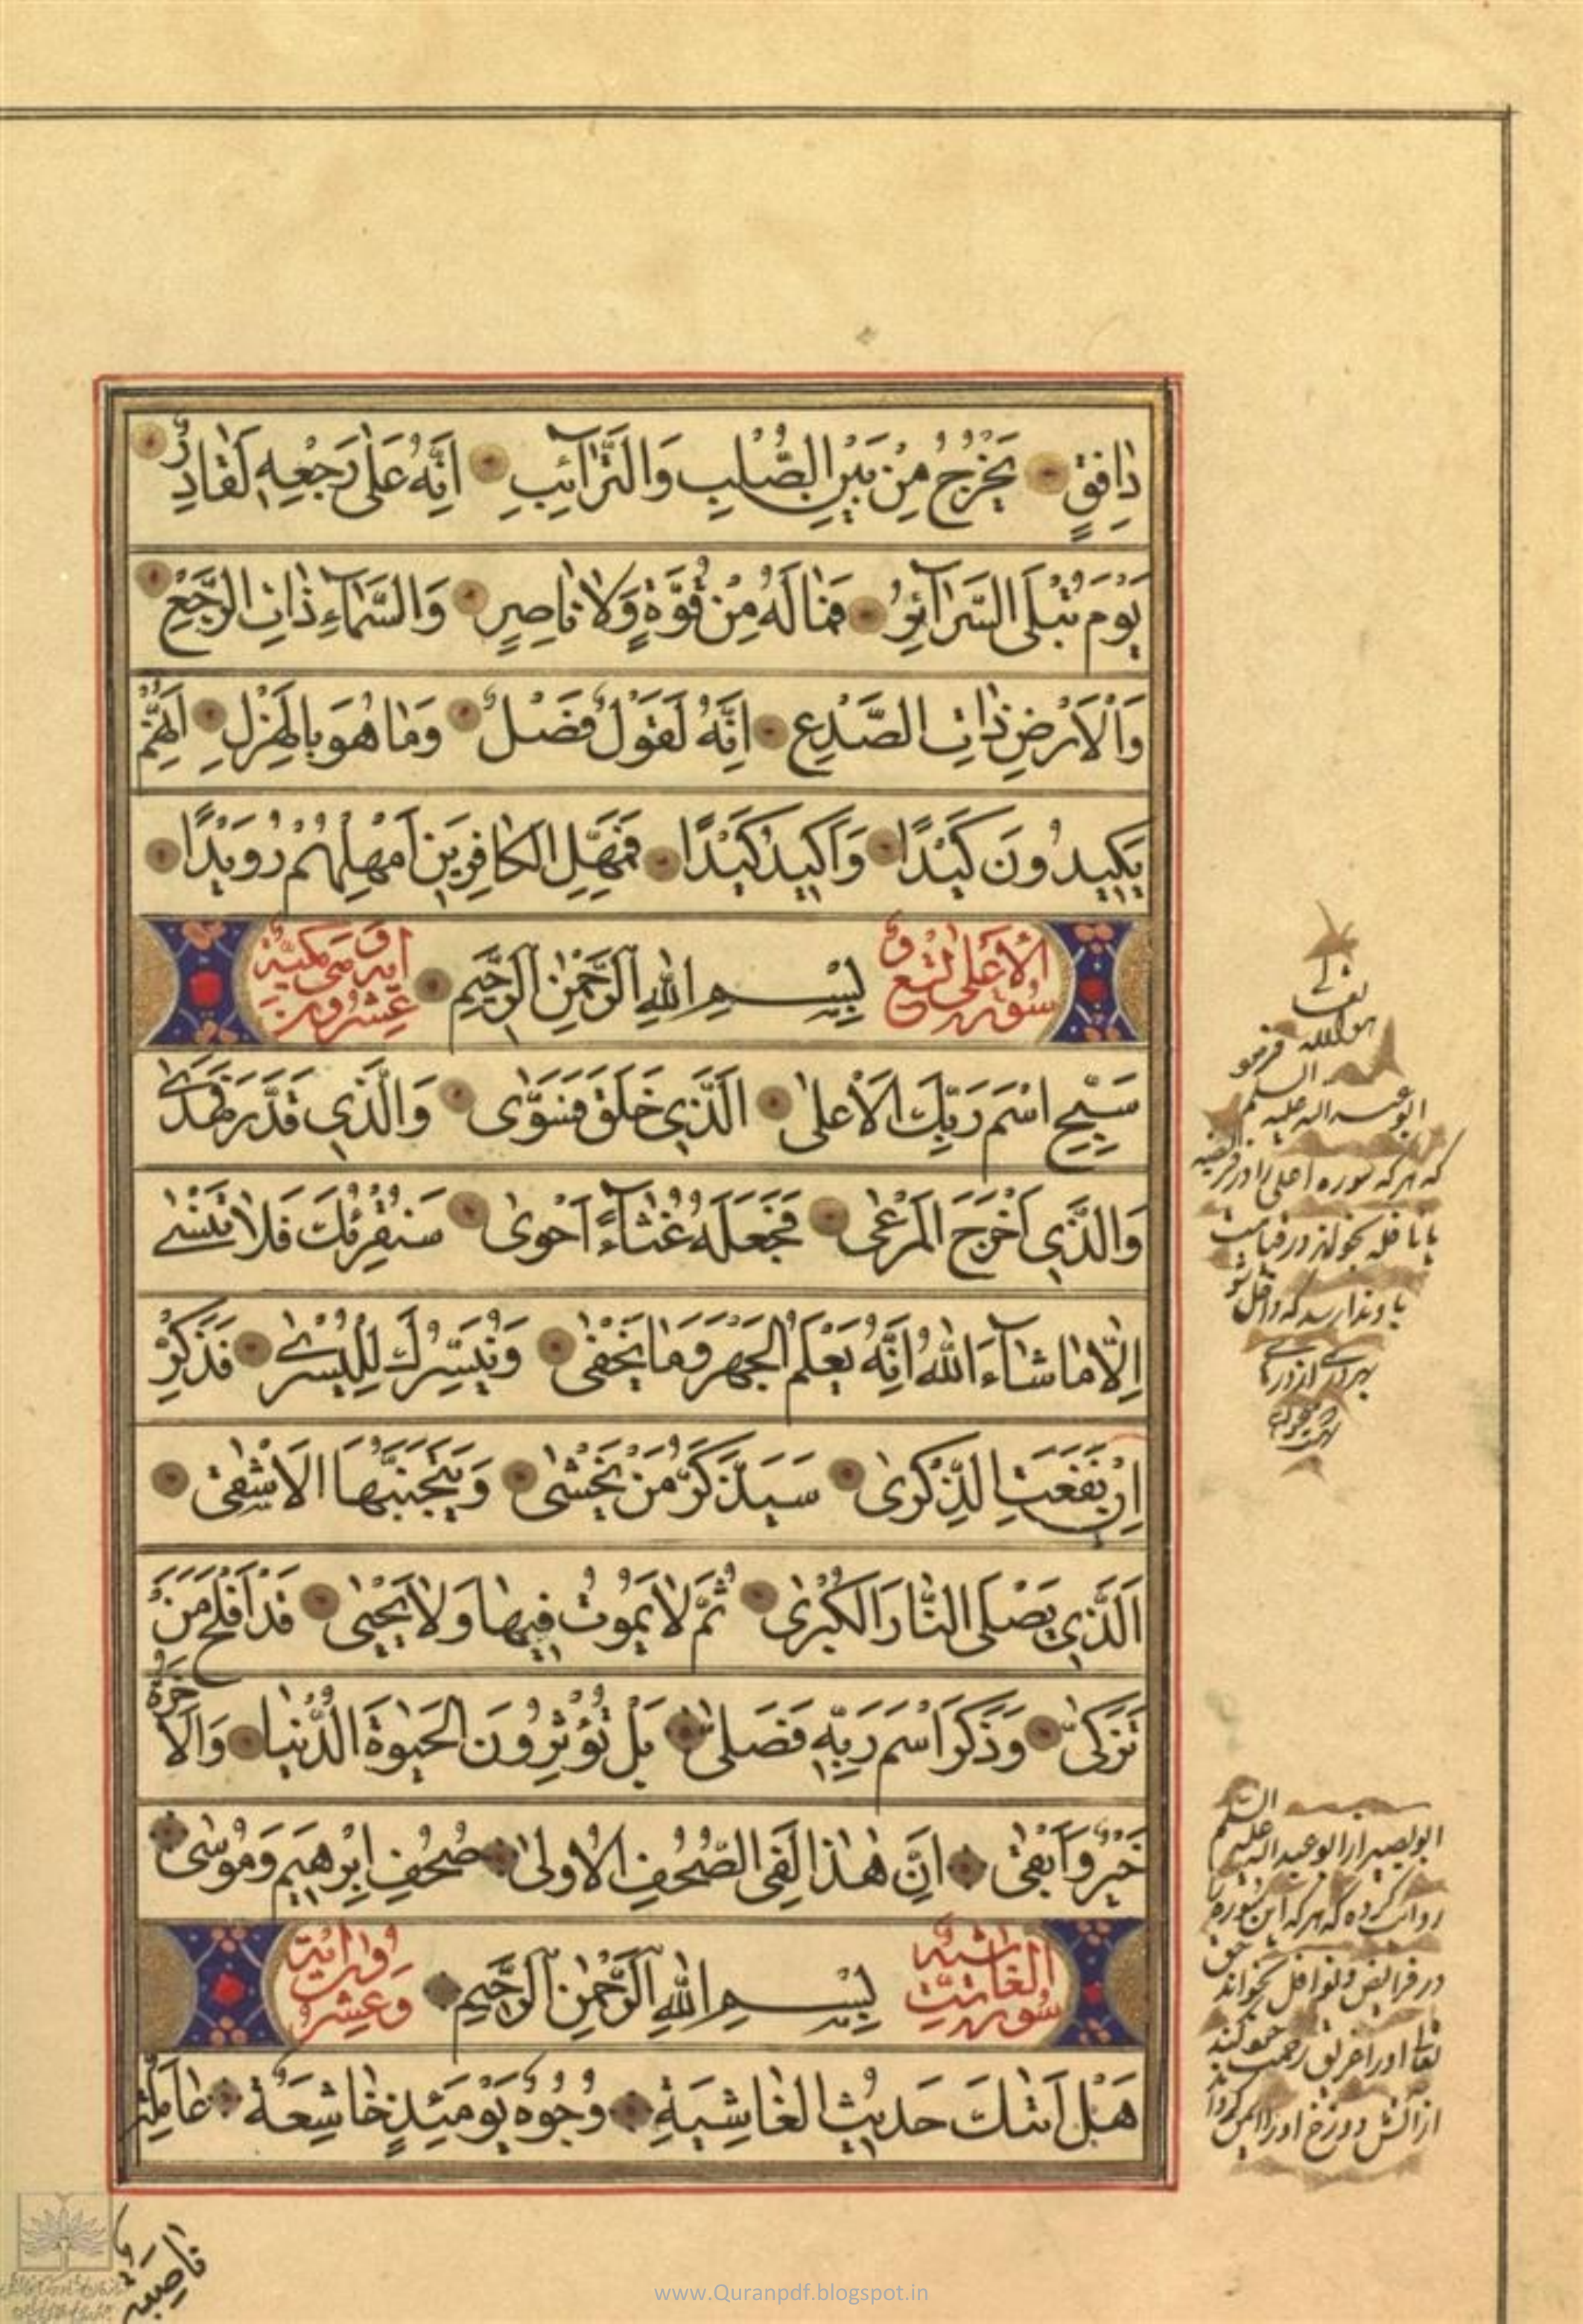 دٰافِقٍ يَخْرُجُ مِنْ بَيْنِ الصُّلْبِ وَالتَّرٰآئِبِ اِنَّهُ عَلٰى رَجْعِهٖ لَقٰادِرٌ
يَوْمَ تُبْلَى السَّرٰآئِرُ فَمٰا لَهُ مِنْ قُوَّةٍ وَلاٰ نٰاصِرٍ وَالسَّمٰآءِ ذٰاتِ الرَّجْعِ
وَالْاَرْضِ ذٰاتِ الصَّدْعِ اِنَّهُ لَقَوْلٌ فَصْلٌ وَمٰا هُوَ بِالْهَزْلِ اِنَّهُمْ
يَكِيدُونَ كَيْدًا وَاَكِيدُ كَيْدًا فَمَهِّلِ الْكٰافِرِينَ اَمْهِلْهُمْ رُوَيْدًا
سورة الأعلى تسع
بِسْمِ اللهِ الرَّحْمٰنِ الرَّحِيمِ
عشر اية وهي مكية
سَبِّحِ اسْمَ رَبِّكَ الْاَعْلٰى اَلَّذِي خَلَقَ فَسَوّٰى وَالَّذِي قَدَّرَ فَهَدٰى
وَالَّذِي اَخْرَجَ الْمَرْعٰى فَجَعَلَهُ غُثٰآءً اَحْوٰى سَنُقْرِئُكَ فَلاٰ تَنْسٰى
اِلّاٰ مٰا شٰآءَ اللهُ اِنَّهُ يَعْلَمُ الْجَهْرَ وَمٰا يَخْفٰى وَنُيَسِّرُكَ لِلْيُسْرٰى فَذَكِّرْ
اِنْ نَفَعَتِ الذِّكْرٰى سَيَذَّكَّرُ مَنْ يَخْشٰى وَيَتَجَنَّبُهَا الْاَشْقٰى
اَلَّذِي يَصْلَى النّٰارَ الْكُبْرٰى ثُمَّ لاٰ يَمُوتُ فِيهٰا وَلاٰ يَحْيٰى قَدْ اَفْلَحَ مَنْ
تَزَكّٰى وَذَكَرَ اسْمَ رَبِّهٖ فَصَلّٰى بَلْ تُؤْثِرُونَ الْحَيٰوةَ الدُّنْيٰا وَالْاٰخِرَةُ
خَيْرٌ وَاَبْقٰى اِنَّ هٰذٰا لَفِي الصُّحُفِ الْاُولٰى صُحُفِ اِبْرٰهِيمَ وَمُوسٰى
سورة الغاشية
بِسْمِ اللهِ الرَّحْمٰنِ الرَّحِيمِ
وعشر
هَلْ اَتٰىكَ حَدِيثُ الْغٰاشِيَةِ وُجُوهٌ يَوْمَئِذٍ خٰاشِعَةٌ عٰامِلَةٌ
ابو عبد الله عليه السلم
كه هر كه سوره اعلى را در فريضه
يا نافله بخواند در قيامت
ابوبصير از ابو عبد الله عليه السلم
روايت كرده كه هر كه اين سوره را
در فرايض و نوافل بخواند حق
تعالى او را غريق رحمت خود كند
از آتش دوزخ او را ايمن كرداند
نٰاصِبَةٌ
www.Quranpdf.blogspot.in